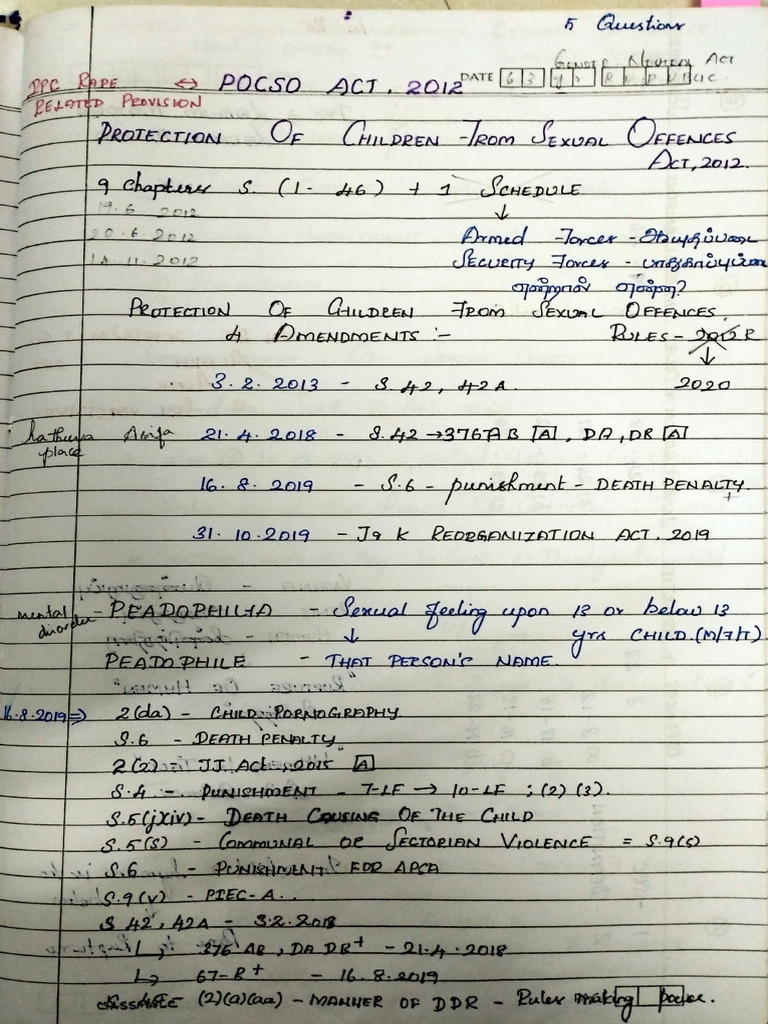 5 Questions
Gender Neutral Act
IPC RAPE ↔ POCSO ACT, 2012 DATE 63 yr REPUBLIC
RELATED PROVISION
PROTECTION OF CHILDREN FROM SEXUAL OFFENCES
ACT, 2012.
9 chapters S. (1 - 46) + 1 SCHEDULE
19.6.2012 ↓
20.6.2012 Armed Forces - ஆயுதப்படை
14.11.2012 SECURITY Forces - பாதுகாப்புப்படை
என்றால் என்ன?
PROTECTION OF CHILDREN FROM SEXUAL OFFENCES,
4 AMENDMENTS :- RULES - 2012
↓
3.2.2013 - S.42, 42A. 2020
Kathuva Asifa 21.4.2018 - S.42 → 376AB [A], DA, DB [A]
place
16.8.2019 - S.6 - punishment - DEATH PENALTY
31.10.2019 - J & K REORGANIZATION ACT, 2019
mental disorder - PEADOPHILIA - Sexual feeling upon 13 or below 13
↓ yrs CHILD.(M/F/T)
PEADOPHILE - THAT PERSON'S NAME.
16.8.2019 ⇒ 2(da) - CHILD PORNOGRAPHY
S.6 - DEATH PENALTY
2(2) - JJ Act, 2015 [A]
S.4 - PUNISHMENT - 7-LF → 10-LF ; (2) (3).
S.5(j)(iv) - DEATH CAUSING OF THE CHILD
S.5(S) - COMMUNAL OR SECTORIAN VIOLENCE = S.9(S)
S.6 - PUNISHMENT FOR APSA
S.9(v) - PIEC-A..
S 42, 42A - 3.2.2013
↳ 376 AB, DA DB+ - 21.4.2018
↳ 67-B+ - 16.8.2019
(2)(a)(aa) - MANNER OF DDR - Rules making power.